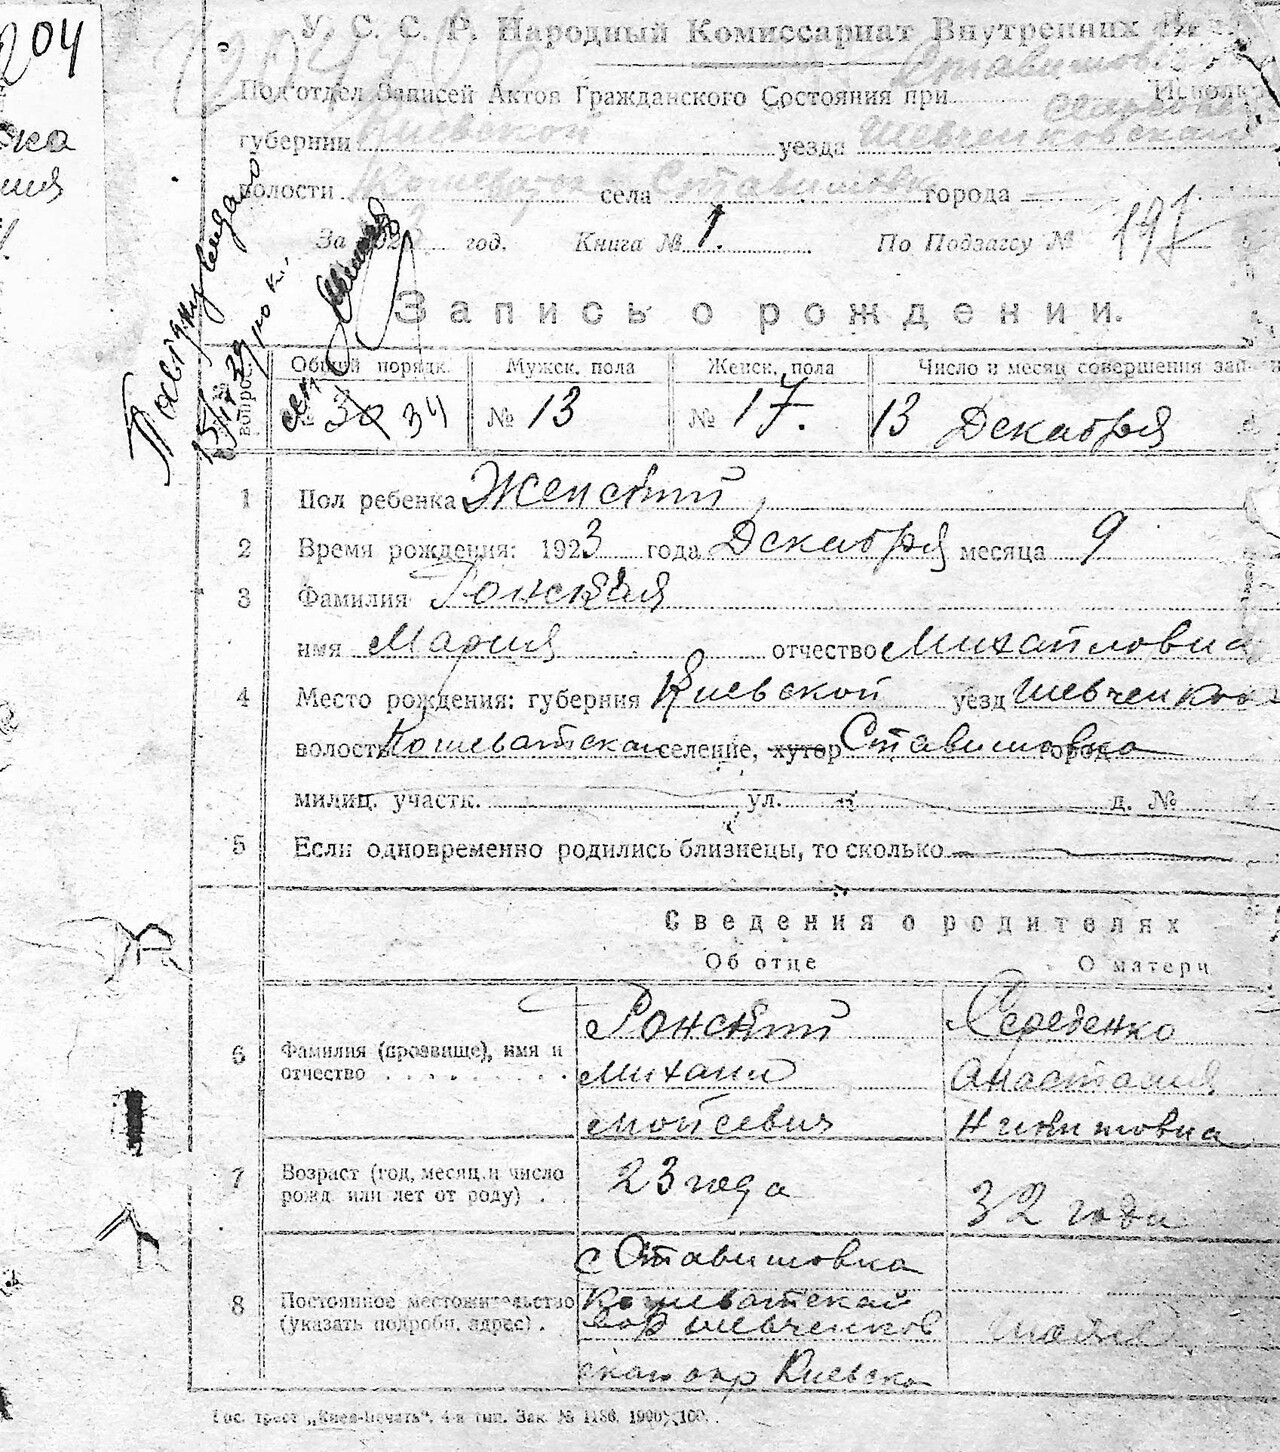 204
У. С. С. Р. Народный Комиссариат Внутренних
Ставишовск
Под'отдел Записей Актов Гражданского Состояния при
губернии Киевской уезда Шевченковская
волости села Ставишовка города
За 1923 год. Книга № 1. По Подзагсу № 197
Запись о рождении.
вопрос. Общий порядк. Мужск. пола Женск. пола Число и месяц совершения зап
№ 30 34 № 13 № 17. 13 Декабря
1 Пол ребенка Женский
2 Время рождения: 1923 года Декабря месяца 9
3 Фамилия Ронская
имя Мария отчество Михайловна
4 Место рождения: губерния Киевской уезд Шевченков
волость Кошеватская селение, хутор Ставишовка города
милиц. участк. ул. д. №
5 Если одновременно родились близнецы, то сколько
Сведения о родителях
Об отце О матери
6 Фамилия (прозвище), имя и отчество Ронский Михаил Мойсевич Середенко Анастасия Никитовна
7 Возраст (год, месяц и число рожд. или лет от роду) 23 года 32 года
8 Постоянное местожительство (указать подробн. адрес) с Ставишовка
Кошеватской
вол Шевченков
ской окр Киевско
Гос. трест „Киев-Печать". 4-я тип. Зак. № 1186. 1900×100.